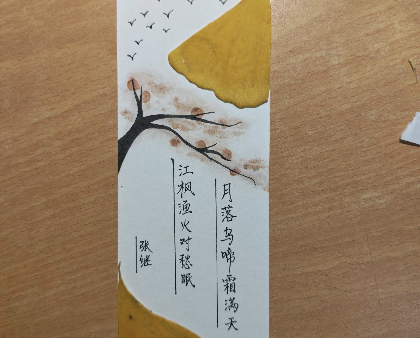 月落乌啼霜满天
江枫渔火对愁眠
张继